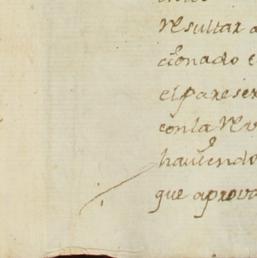 resultar a
cionado e
el pareser
con la rev
haviendo
que aprova